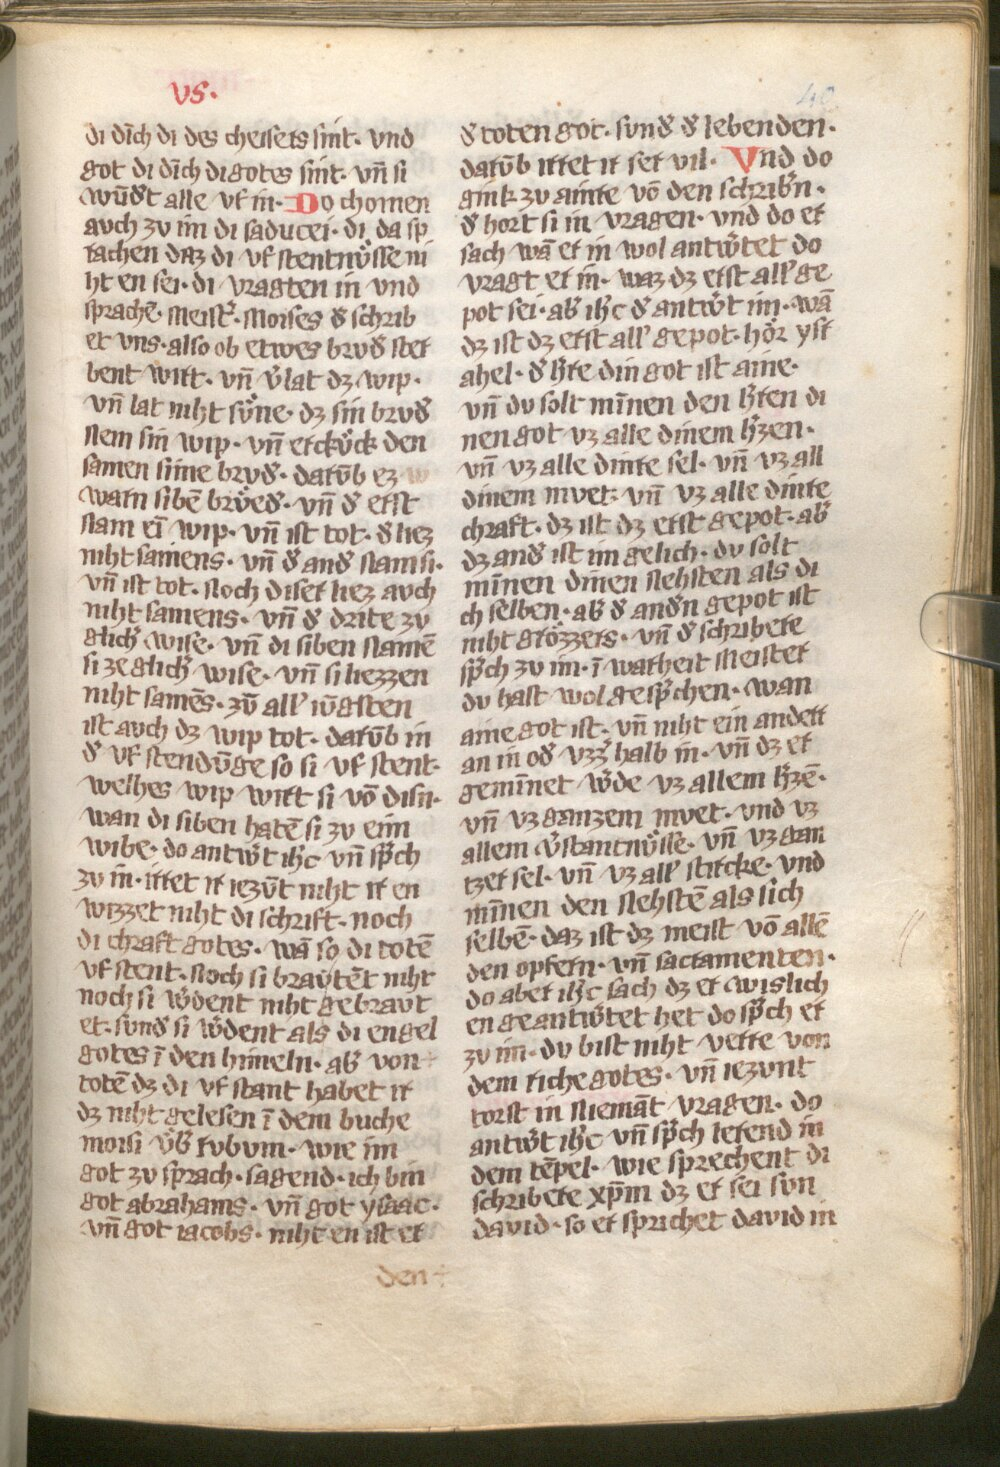 vs.
40
di dīch di des cheisers sint · vnd
got di dīch di gotes sint · vn̄ si
wūdˀt alle vf in · Do chomen
avch zv im di saducei · di da sp
rachen daz di vf stentnvͤsse ni
ht en sei · di vragten in vnd
sprachē · Meistˀ · Moises dˀ schrib
er vns · also ob etwes brvdˀ ster
bent wirt · vn̄ vˀlat dz wip ·
vn̄ lat niht svͤne · dz sin brvdˀ
nem sin wip · vn̄ erckvͤck den
samen sine brvdˀ · darūb ez
warn sibē brvͤedˀ · vn̄ dˀ erst
nam eī wip · vn̄ ist tot · dˀ liez
niht samens · vn̄ dˀ andˀ nam si ·
vn̄ ist tot · Noch diser liez avch
niht samens · vn̄ dˀ drite zv
glichˀ wise · vn̄ di siben namē
si ze glichˀ wise · vn̄ si liezzen
niht samēs · zv̄ allˀ iv̄gsten
ist avch dz wip tot · darūb in
dˀ vf stendv̄ge so si vf stent ·
welhes wip wirt si vō disn ·
wan di siben hatē si zv eim
wibe · do antwˀt ih̄c vn̄ spˀch
zv in · irret ir iezv̄t niht ir en
wizzet niht di schrift · noch
di chraft gotes · wā so di totē
vf stent · Noch si bravtēt niht
noch si wˀdent niht gebravt
er · svndˀ si wˀdent als di engel
gotes ī den himeln · abˀ von
totē dz di vf stant habet ir
dz niht gelesen ī dem buche
moisi vˀbˀ rvbvm · wie im
got zv sprach · sagend · ich bin
got abrahams · vn̄ got ysaac ·
vn̄ got iacobs · niht en ist er
den
dˀ toten got · svndˀ dˀ lebenden ·
darv̄b irret ir ser vil · Vnd do
gink zv ainre vō den schribˀn ·
dˀ hort si in vragen · vnd do er
sach wā er in wol antwˀtet do
vragt er in · waz dz erst allˀ ge
pot sei · abˀ ih̄c dˀ antwˀt im · wā
dz ist dz erst allˀ gepot · hoͤr ysr
ahel · dˀ hˀre din got ist aine ·
vn̄ dv solt mīnen den hˀren di
nen got vz alle dinem hˀzen ·
vn̄ vz alle dinre sel · vn̄ vz all
dinem mvet · vn̄ vz alle dinre
chraft · dz ist dz erst gepot · abˀ
dz andˀ ist im gelich · dv solt
mīnen dinen nehsten als di
ch selben · abˀ dˀ andˀn gepot ist
niht groͤzzers · vn̄ dˀ schribere
spˀch zv im · ī warheit Meister
dv hast wol gespˀchen · wan
aine got ist · vn̄ niht ein anderr
an in odˀ vzzˀ halb in · vn̄ dz er
gemīnet wˀde vz allem hˀzē ·
vn̄ vz ganzem mvet · vnd vz
allem vˀstantnvͤsse · vn̄ vz gan
tzer sel · vn̄ vz allˀ stercke · vnd
mīnen den nehstē als sich
selbē · daz ist dz meist vō allē
den opfern · vn̄ sacramenten ·
do aber ih̄c sach dz er wislich
en geantwˀtet het do spˀch er
zv im · dv bist niht verre von
dem riche gotes · vn̄ iezvnt
torst in niemāt vragen · do
antwˀt ih̄c vn̄ spˀch lerend in
dem tēpel · wie sprechent di
schribere xp̄m dz er sei svn
david · so er sprichet david in